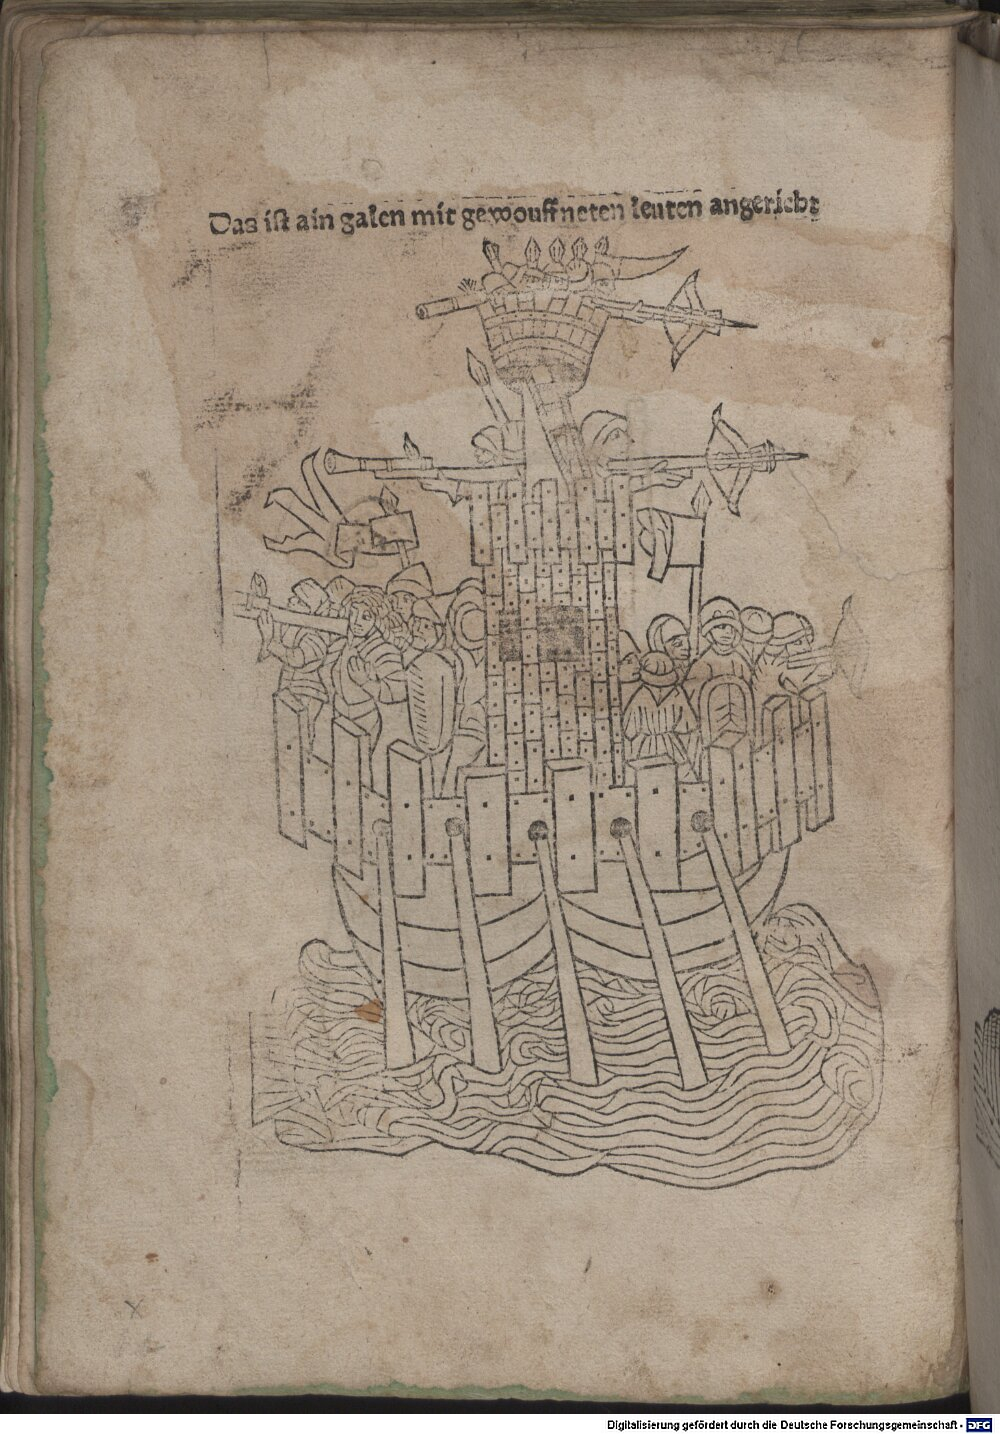 Das ist ain galen mit gewouffneten leuten angericht
Digitalisierung gefördert durch die Deutsche Forschungsgemeinschaft - DFG